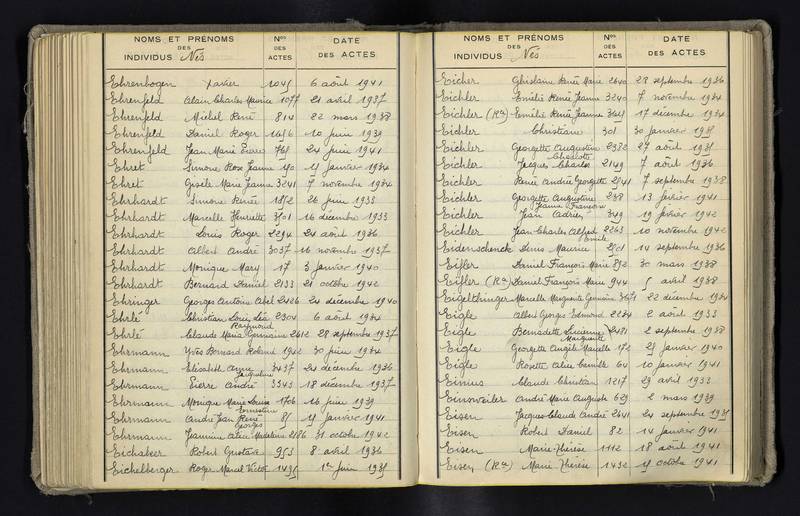 NOMS ET PRÉNOMS DES INDIVIDUS Nés Nos DES ACTES DATE DES ACTES
Ehrenbogen Xavier 1045 6 août 1941
Ehrenfeld Alain Charles Maurice 1077 21 avril 1937
Ehrenfeld Michel René 814 22 mars 1938
Ehrenfeld Daniel Roger 1656 10 juin 1939
Ehrenfeld Jean Marie Pierre 768 24 juin 1941
Ehret Simone Rose Jeanne 150 15 janvier 1934
Ehret Gisèle Marie Jeanne 3241 7 novembre 1934
Ehrhardt Simone Renée 1852 26 juin 1933
Ehrhardt Marcelle Henriette 3501 16 décembre 1933
Ehrhardt Louis Roger 2294 24 août 1936
Ehrhardt Albert André 3037 16 novembre 1937
Ehrhardt Monique Mary 17 3 janvier 1940
Ehrhardt Bernard Daniel 2133 21 octobre 1942
Ehringer Georges Antoine Abel 2426 24 décembre 1940
Ehrlé Christian Louis Léa 2304 6 août 1934
Raymond
Ehrlé Claude Marie Germaine 2612 28 septembre 1937
Ehrmann Yves Bernard Roland 1942 30 juin 1934
Ehrmann Elisabeth Anne 3437 24 décembre 1936
Jacqueline
Ehrmann Pierre André 3343 18 décembre 1937
Ehrmann Monique Marie Louise 1706 16 juin 1939
Ernestine
Ehrmann André Jean René 85 15 janvier 1941
Georges
Ehrmann Jeannine Alice Madeleine 2186 31 octobre 1942
Eichaker Robert Gustave 953 8 avril 1936
Eichelberger Roger Marcel Victor 1495 1er juin 1935
NOMS ET PRÉNOMS DES INDIVIDUS Nés Nos DES ACTES DATE DES ACTES
Eicher Ghislaine Renée Marie 2640 28 septembre 1936
Eichler Emilie Renée Jeanne 3240 7 novembre 1934
Eichler (Ron) Emilie Renée Jeanne 17 décembre 1934
Eichler Christiane 301 30 janvier 1935
Eichler Georgette Augustine 2332 27 août 1935
Charlotte
Eichler Jacques Charles 2149 7 août 1936
Eichler Renée Andrée Georgette 2541 7 septembre 1938
Eichler Georgette Augustine 238 13 février 1941
Jeanne Françoise
Eichler Jean Adrien 349 19 février 1942
Eichler Jean Charles Alfred 2263 10 novembre 1942
Emile
Eidenschenck Denis Maurice 2501 14 septembre 1936
Eifler Daniel François Marie 892 30 mars 1938
Eifler (Ron) Daniel François Marie 944 5 avril 1938
Eigeltinger Marcelle Marguerite Germaine 3671 22 décembre 1934
Eigle Albert Georges Edmond 2234 2 août 1933
Eigle Bernadette Lucienne 2481 2 septembre 1938
Marguerite
Eigle Georgette Angèle Marcelle 172 25 janvier 1940
Eigle Rosette Alice Camille 64 10 janvier 1941
Einius Claude Christian 1217 29 avril 1933
Einsweiler André Marie Auguste 629 2 mars 1939
Eisen Jacques Claude André 2641 24 septembre 1935
Eisen Robert Daniel 82 14 janvier 1941
Eisen Marie-Thérèse 1112 18 août 1941
Eisen (Ron) Marie-Thérèse 1432 15 octobre 1941